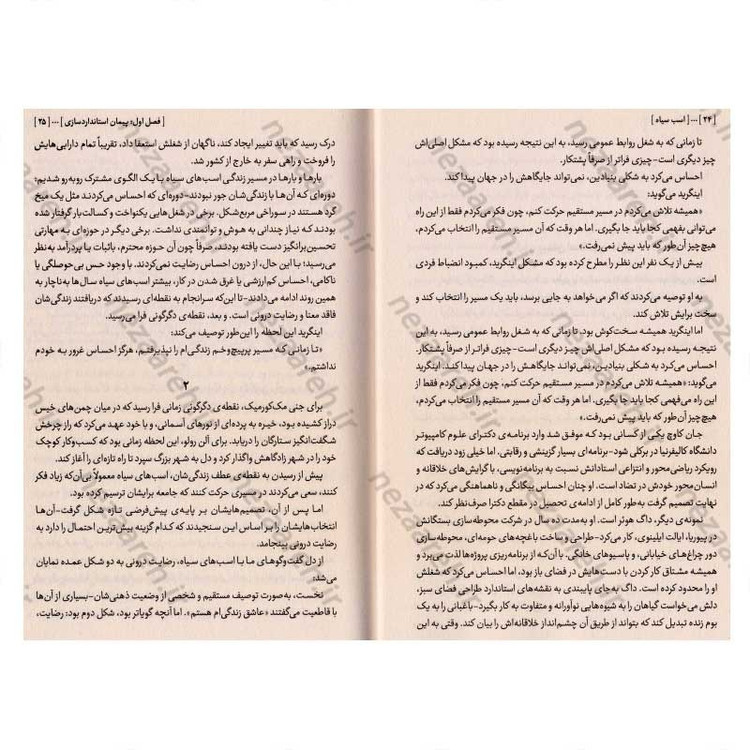 [ ۲۴ ] ... [ اسب سیاه ]
تا زمانی که به شغل روابط عمومی رسید، به این نتیجه رسیده بود که مشکل اصلی‌اش
چیز دیگری است-چیزی فراتر از صرفاً پشتکار.
احساس می‌کرد به شکلی بنیادین، نمی‌تواند جایگاهش را در جهان پیدا کند.
اینگرید می‌گوید:
«همیشه تلاش می‌کردم در مسیر مستقیم حرکت کنم، چون فکر می‌کردم فقط از این راه
می‌توانی بفهمی کجا باید جا بگیری. اما هر وقت که آن مسیر مستقیم را انتخاب می‌کردم،
هیچ‌چیز آن‌طور که باید پیش نمی‌رفت.»
پیش از یک نفر این نظر را مطرح کرده بود که مشکل اینگرید، کمبود انضباط فردی
است.
به او توصیه می‌کردند که اگر می‌خواهد به جایی برسد، باید یک مسیر را انتخاب کند و
سخت برایش تلاش کند.
اما اینگرید همیشه سخت‌کوش بود. تا زمانی که به شغل روابط عمومی رسید، به این
نتیجه رسیده بود که مشکل اصلی‌اش چیز دیگری است-چیزی فراتر از صرفاً پشتکار.
احساس می‌کرد به شکلی بنیادین، نمی‌تواند جایگاهش را در جهان پیدا کند. اینگرید
می‌گوید: «همیشه تلاش می‌کردم در مسیر مستقیم حرکت کنم، چون فکر می‌کردم فقط از
این راه می‌فهمی کجا باید جا بگیری. اما هر وقت که آن مسیر مستقیم را انتخاب می‌کردم،
هیچ‌چیز آن‌طور که باید پیش نمی‌رفت.»
جان کاوچ یکی از کسانی بود که موفق شد وارد برنامه‌ی دکترای علوم کامپیوتر
دانشگاه کالیفرنیا در برکلی شود-برنامه‌ای بسیار گزینشی و رقابتی. اما خیلی زود دریافت که
رویکرد ریاضی‌محور و انتزاعی استادانش نسبت به برنامه‌نویسی، با گرایش‌های خلاقانه و
انسان‌محور خودش در تضاد است. او چنان احساس بیگانگی و ناهماهنگی می‌کرد که در
نهایت تصمیم گرفت به‌طور کامل از ادامه‌ی تحصیل در مقطع دکترا صرف‌نظر کند.
نمونه‌ی دیگر، داگ هوئر است. او به‌مدت ده سال در شرکت محوطه‌سازی بستگانش
در پیوریا، ایالت ایلینوی، کار می‌کرد-طراحی و ساخت باغچه‌های حومه‌ای، محوطه‌سازی
دور چراغ‌های خیابانی، و پاسیوهای خانگی. با آن‌که از برنامه‌ریزی پروژه‌ها لذت می‌برد و
همیشه مشتاق کار کردن با دست‌هایش در فضای باز بود، اما احساس می‌کرد که شغلش
او را محدود کرده است. داگ به‌جای پایبندی به نقشه‌های استاندارد طراحی فضای سبز،
دلش می‌خواست گیاهان را به شیوه‌هایی نوآورانه و متفاوت به کار بگیرد-باغبانی را به یک
بوم زنده تبدیل کند که بتواند از طریق آن چشم‌انداز خلاقانه‌اش را بیان کند. وقتی به این
[ فصل اول؛ پیمان استانداردسازی ] ... [ ۲۵ ]
درک رسید که باید تغییر ایجاد کند، ناگهان از شغلش استعفا داد، تقریباً تمام دارایی‌هایش
را فروخت و راهی سفر به خارج از کشور شد.
بارها و بارها در مسیر زندگی اسب‌های سیاه با یک الگوی مشترک روبه‌رو شدیم:
دوره‌ای که آن‌ها با زندگی‌شان جور نبودند-دوره‌ای که احساس می‌کردند مثل یک میخ
گرد هستند در سوراخی مربع‌شکل. برخی در شغل‌هایی یکنواخت و کسالت‌بار گرفتار شده
بودند که نیاز چندانی به هوش و توانمندی نداشت. برخی دیگر در حوزه‌ای به مهارتی
تحسین‌برانگیز دست یافته بودند، صرفاً چون آن حوزه محترم، باثبات یا پردرآمد به‌نظر
می‌رسید؛ با این حال، از درون احساس رضایت نمی‌کردند. با وجود حس بی‌حوصلگی یا
ناکامی، احساس کم‌ارزشی یا غرق شدن در کار، بیشتر اسب‌های سیاه سال‌ها به‌ناچار به
همین روند ادامه می‌دادند-تا این‌که سرانجام به نقطه‌ای رسیدند که دریافتند زندگی‌شان
فاقد معنا و رضایت درونی است. و بعد، نقطه‌ی دگرگونی فرا می‌رسید.
اینگرید این لحظه را این‌طور توصیف می‌کند:
«تا زمانی که مسیر پرپیچ‌وخم زندگی‌ام را نپذیرفتم، هرگز احساس غرور به خودم
نداشتم.»
۲
برای جنی مک‌کورمیک، نقطه‌ی دگرگونی زمانی فرا رسید که در میان چمن‌های خیس
دراز کشیده بود، خیره به پرده‌ای از نورهای آسمانی، و با خود عهد می‌کرد که راز چرخش
شگفت‌انگیز ستارگان را دریابد. برای آلن رولو، این لحظه زمانی بود که کسب‌وکار کوچک
خود را در شهر زادگاهش واگذار کرد و دل به شهر بزرگ سپرد تا راه تازه‌ای را آغاز کند.
پیش از رسیدن به نقطه‌ی عطف زندگی‌شان، اسب‌های سیاه معمولاً بی‌آن‌که زیاد فکر
کنند، سعی می‌کردند در مسیری حرکت کنند که جامعه برایشان ترسیم کرده بود.
اما پس از آن، تصمیم‌هایشان بر پایه‌ی پیش‌فرضی تازه شکل گرفت-آن‌ها
انتخاب‌هایشان را بر اساس این سنجیدند که کدام گزینه بیش‌ترین احتمال را دارد به
رضایت درونی بینجامد.
از دل گفت‌وگوهای ما با اسب‌های سیاه، رضایت درونی به دو شکل عمده نمایان
می‌شد:
نخست، به‌صورت توصیف مستقیم و شخصی از وضعیت ذهنی‌شان-بسیاری از آن‌ها
با قاطعیت می‌گفتند «عاشق زندگی‌ام هستم». اما آنچه گویاتر بود، شکل دوم بود: رضایت،
nezareh.ir